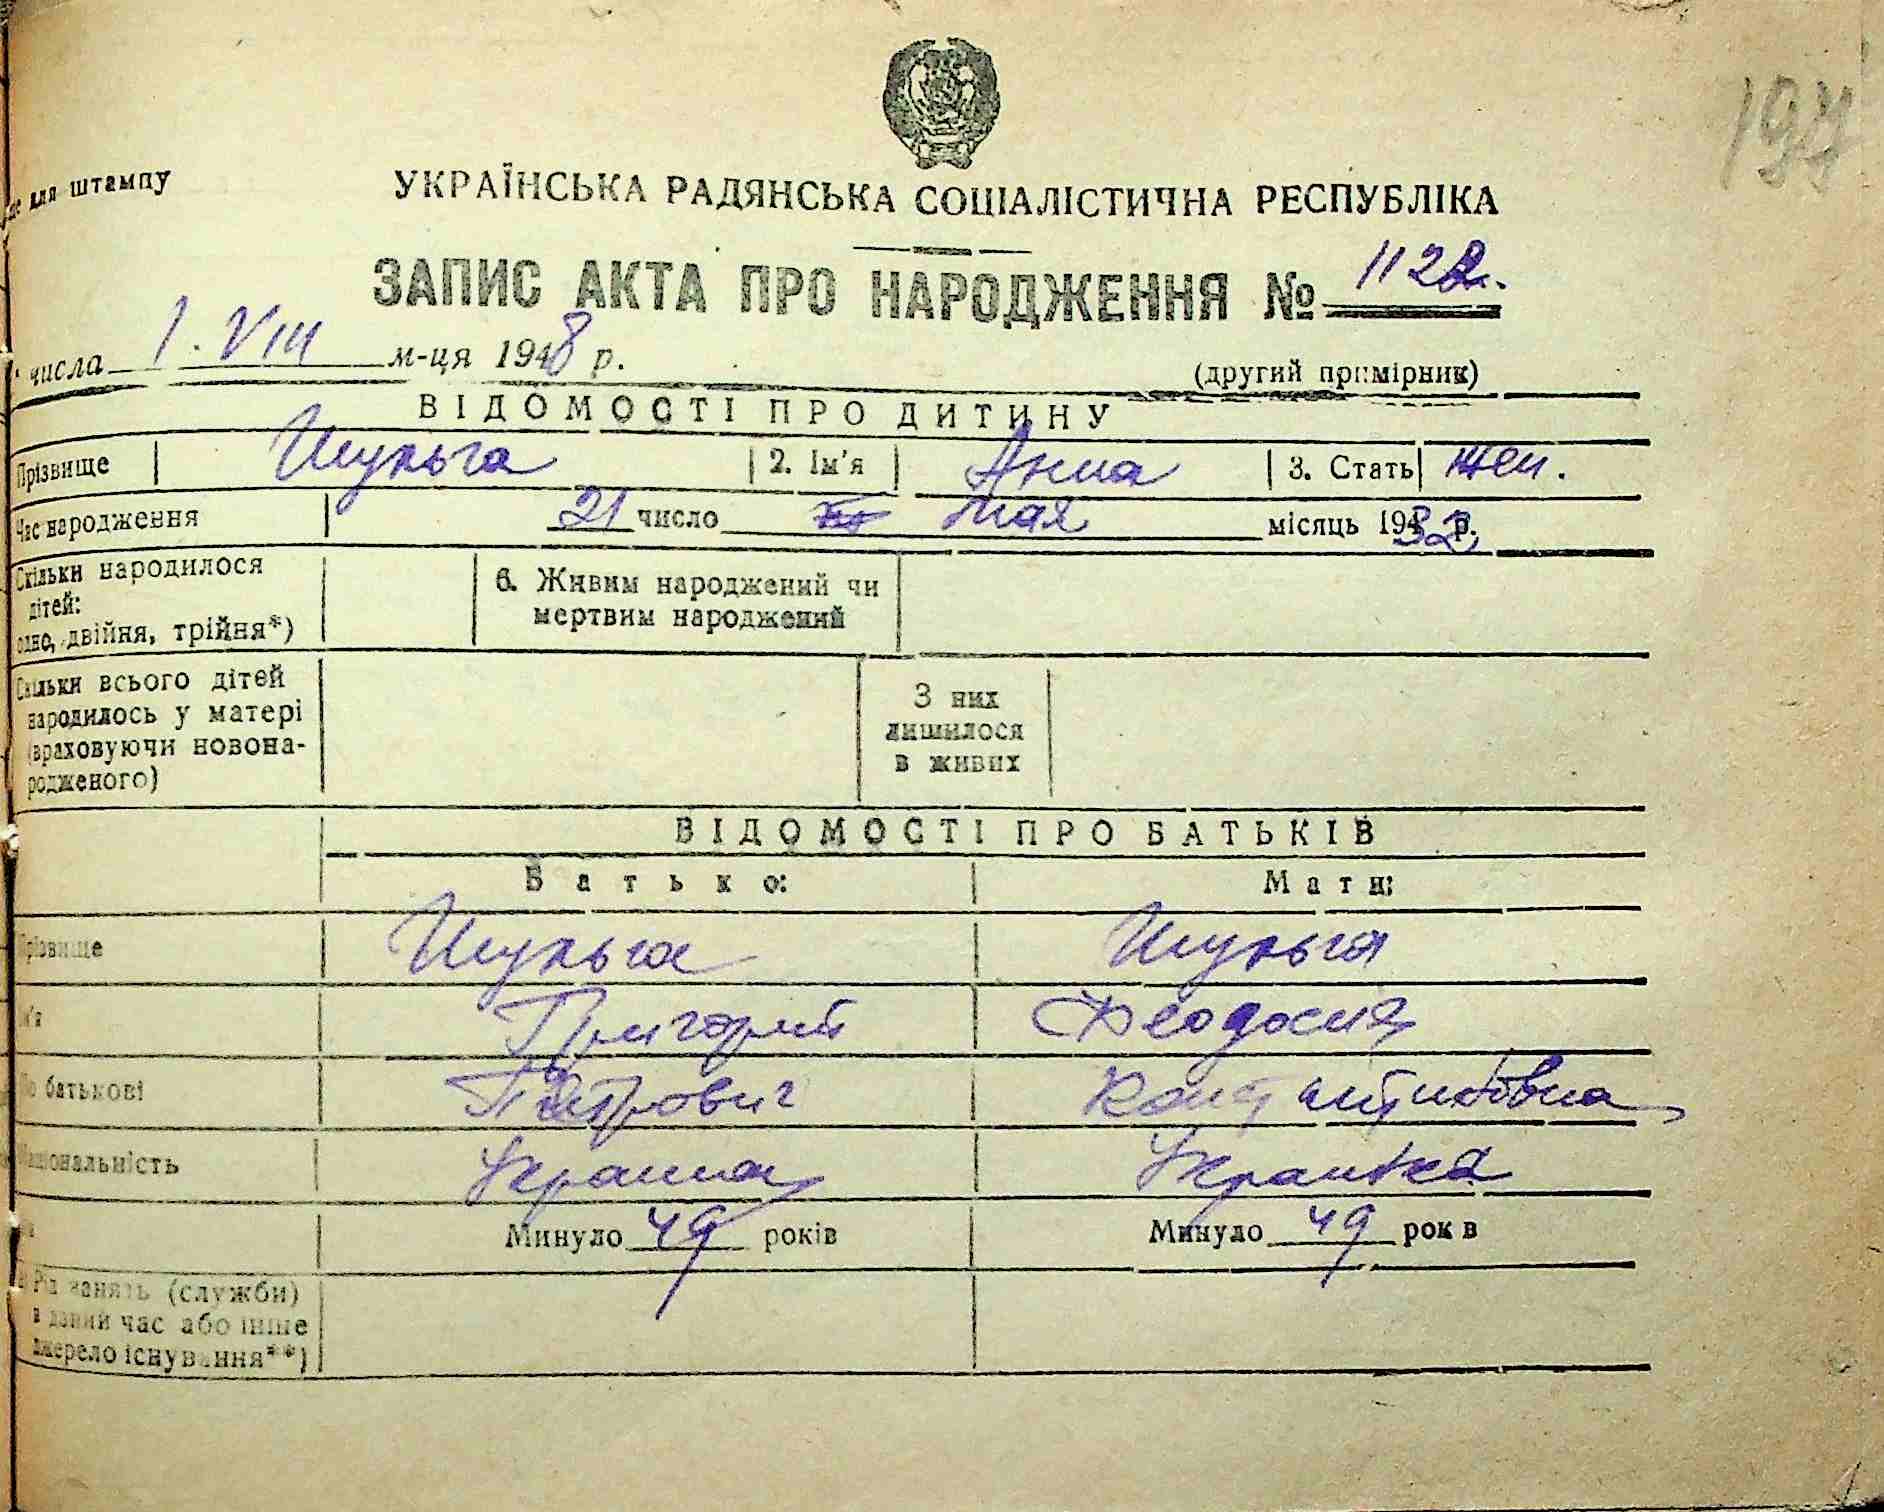 для штампу
194
УКРАЇНСЬКА РАДЯНСЬКА СОЦІАЛІСТИЧНА РЕСПУБЛІКА
ЗАПИС АКТА ПРО НАРОДЖЕННЯ № 1122.
числа 1. VIII м-ця 1948 р.
(другий примірник)
ВІДОМОСТІ ПРО ДИТИНУ
Прізвище Шульга 2. Ім'я Анна 3. Стать жен.
Час народження 21 число мая місяць 1932 р.
Скільки народилося
дітей:
одно, двійня, трійня*)
6. Живим народжений чи
мертвим народжений
Скільки всього дітей
народилось у матері
(враховуючи новона-
родженого)
З них
лишилося
в живих
ВІДОМОСТІ ПРО БАТЬКІВ
Батько: Мати:
Прізвище Шульга Шульга
м'я Григорий Феодосия
По батькові Петрович Константиновна
Національність Украинец Украинка
Минуло 49 років Минуло 49 рок в
Рід занять (служби)
в даний час або інше
джерело існування**)